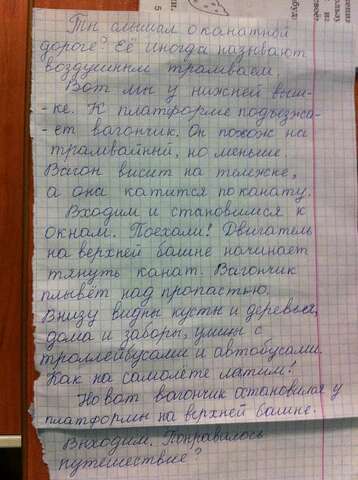 Ты слышал о канатной
дороге? Её иногда называют
воздушным трамваем.
Вот мы у нижней выш-
-ке. К платформе подъезжа-
-ет вагончик. Он похож на
трамвайный, но меньше.
Вагон висит на тележке,
а она катится по канату.
Входим и становимся к
окнам. Поехали! Двигатель
на верхней башне начинает
тянуть канат. Вагончик
плывёт над пропастью.
Внизу видны кусты и деревья,
дома и заборы, улицы с
троллейбусами и автобусами.
Как на самолёте латим!
Но ват вагончик остановился у
платформы на верхней башне.
Выходим. Понравилось
путешествие?